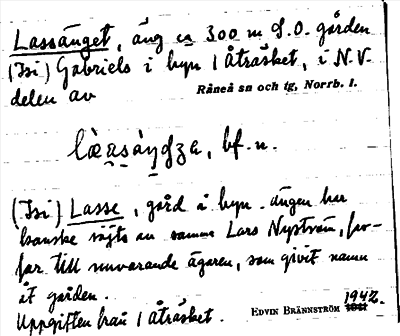 Lassänget, äng ca 300 m S.O. gården
(Isi) Gabriels i byn 1 Åträsket, i N.V.
delen av Råneå sn och tg, Norrb. l.
bf. n.
(Isi) Lasse, gård i byn. ängen har
kanske röjts av samme Lars Nyström, far-
far till nuvarande ägaren, som givit namn
åt gården.
Uppgiften från 1 Åträsket.
EDVIN BRÄNNSTRÖM 1942.